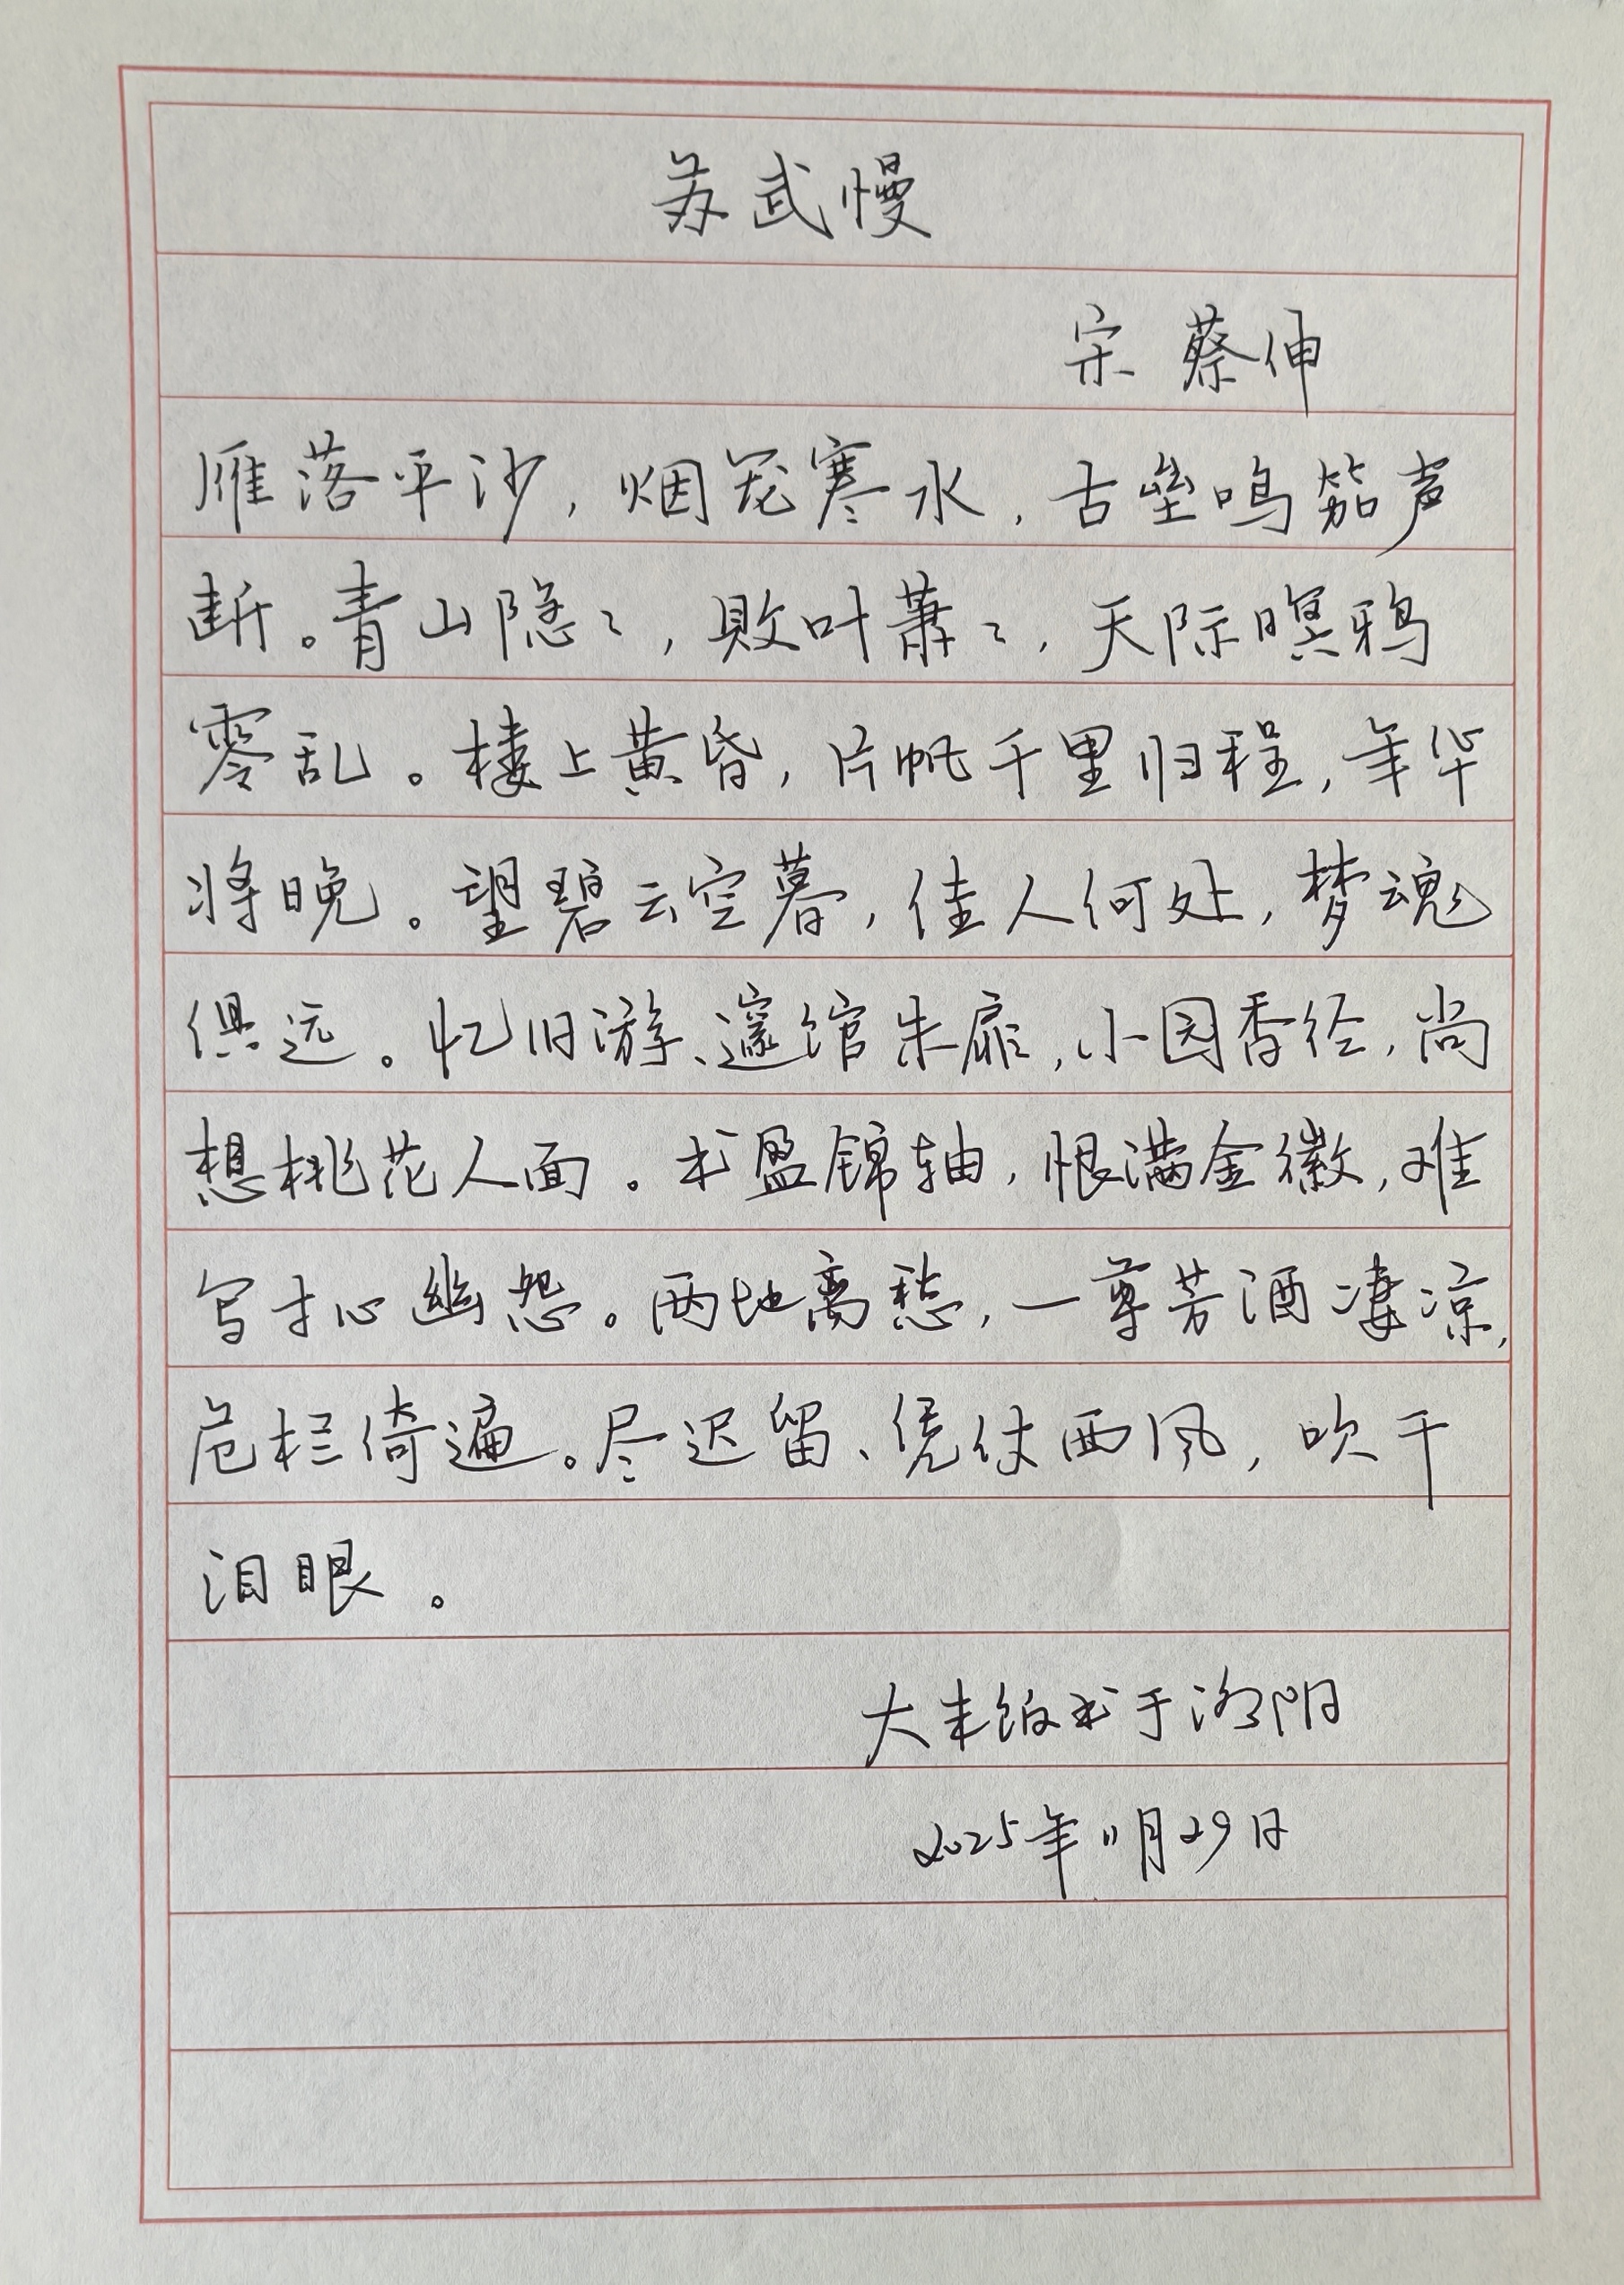 苏武慢
宋 蔡伸
雁落平沙，烟笼寒水，古垒鸣笳声
断。青山隐々，败叶萧々，天际暝鸦
零乱。楼上黄昏，片帆千里归程，年华
将晚。望碧云空暮，佳人何处，梦魂
俱远。忆旧游、邃馆朱扉，小园香径，尚
想桃花人面。书盈锦轴，恨满金徽，难
写寸心幽怨。两地离愁，一尊芳酒凄凉，
危栏倚遍。尽迟留、凭仗西风，吹干
泪眼。
大 书于洛阳
2025年11月29日